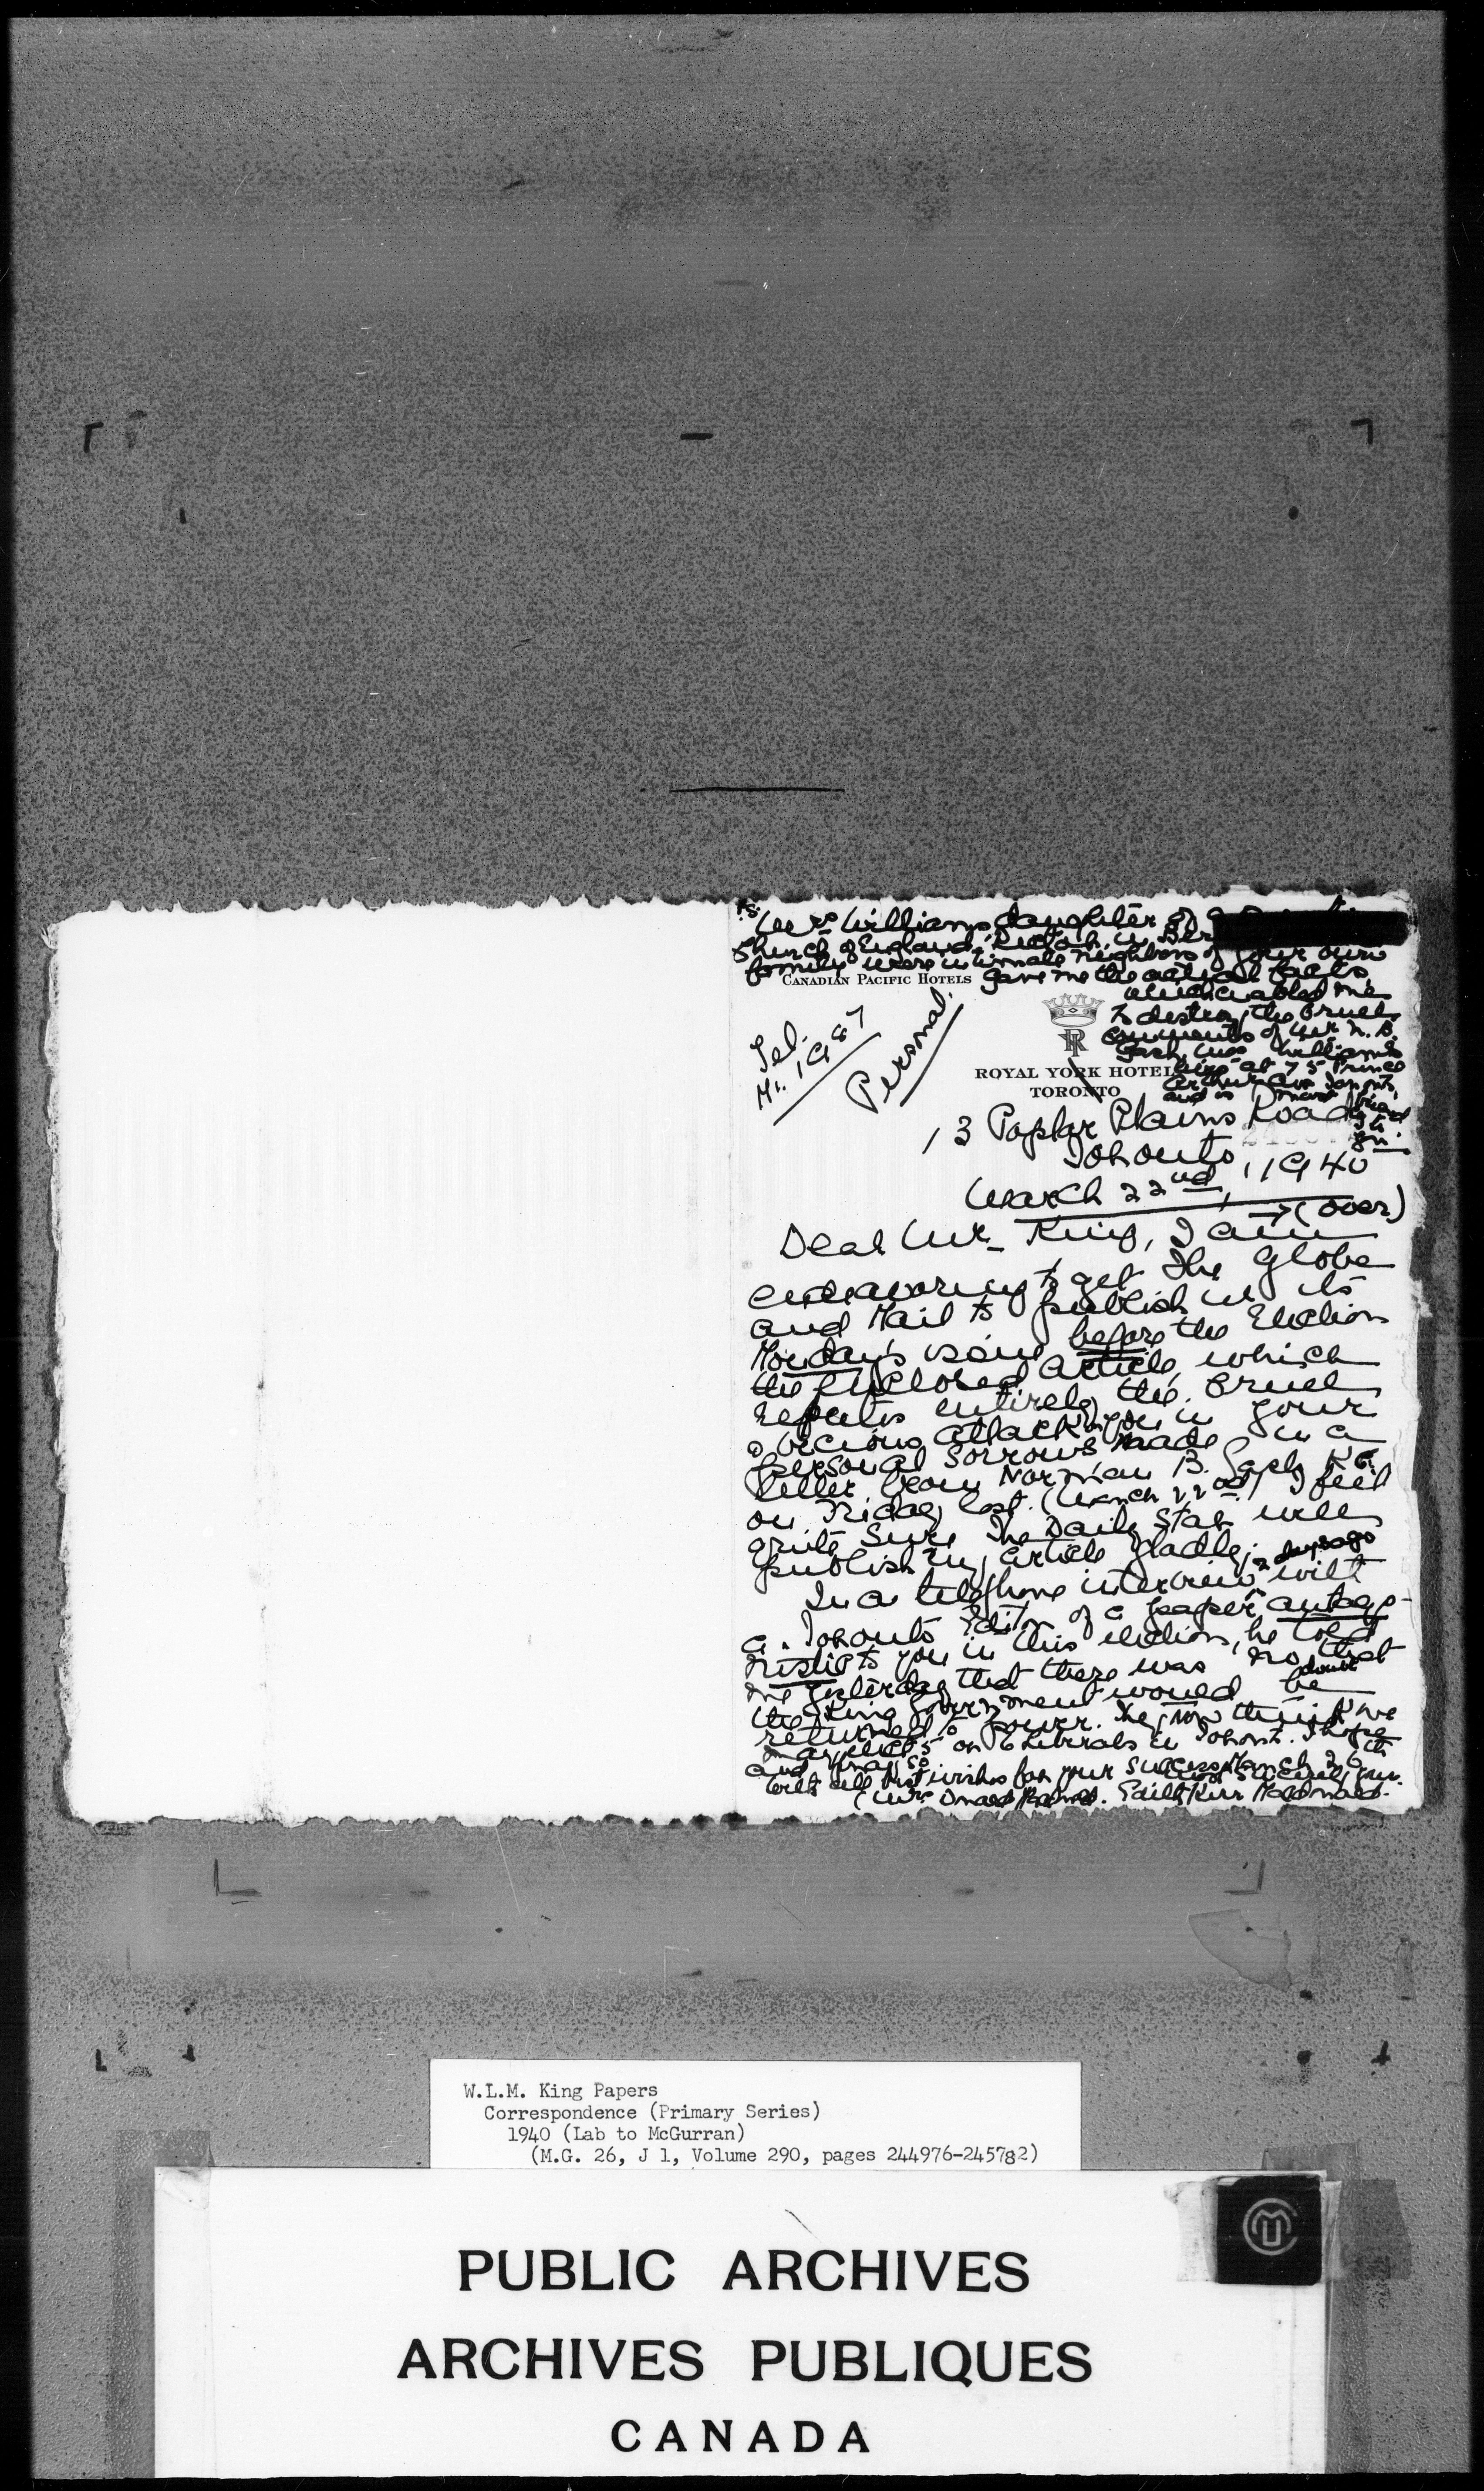 P.S.
Mrs Williams daughter of a
Church of England Rector in Ber
family were intimate neighbors of your own
CANADIAN PACIFIC HOTELS gave me the actual facts
which enabled me
to destroy the cruel
comments of Mr. N. B.
Gash, Mrs Williams
lives at 75 Prince
Arthur Ave Toronto
and is most
Tel.
Mi. 1987
Personal.
ROYAL YORK HOTEL
TORONTO
13 Poplar Plains Road
Toronto
March 22nd, 1940
→ (over)
Dear Mr. King, I am
endeavoring to get The Globe
and Mail to publish in its
Monday's issue before the Election
the enclosed article, which
refutes entirely the cruel
& vicious attack on you in your
personal sorrows made in a
letter from Norman B. Gash K.C.
on Friday last. (March 22nd) I feel
quite sure The Daily Star will
publish my article gladly.
In a telephone interview 2 days ago with
a Toronto Editor of a paper antago-
nistic to you in this election, he told
me yesterday that there was no doubt that
the King Government would be
returned to power. He now thinks we
may elect 5 or 6 Liberals in Toronto. I hope
and pray so
With all best wishes for your success March 26th
Sincerely yours
(Mrs Donald Macdonald. Edith Kerr Macdonald.
W.L.M. King Papers
Correspondence (Primary Series)
1940 (Lab to McGurran)
(M.G. 26, J 1, Volume 290, pages 244976-245782)
PUBLIC ARCHIVES
ARCHIVES PUBLIQUES
CANADA